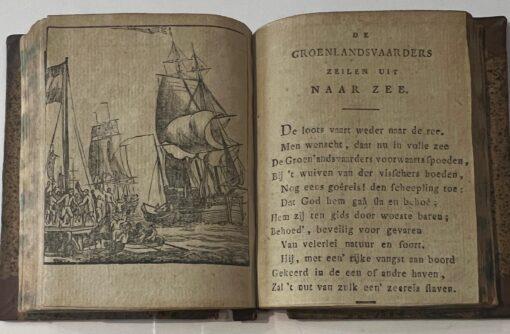 DE
GROENLANDSVAARDERS
ZEILEN UIT
NAAR ZEE.
De loots vaart weder naar de ree.
Men wenscht, daar nu in volle zee
De Groen'andsvaarders voorwaarts spoeden,
Bij 't wuiven van der visschers hoeden,
Nog eens goêreis! den scheepling toe:
Dat God hem gaâ sla en behoê;
Hem zij ten gids door woeste baren;
Behoed', beveilig voor gevaren
Van velerlei natuur en soort.
Hij, met een' rijke vangst aan boord
Gekeerd in de een of andre haven,
Zal 't nut van zulk een' zeereis staven.